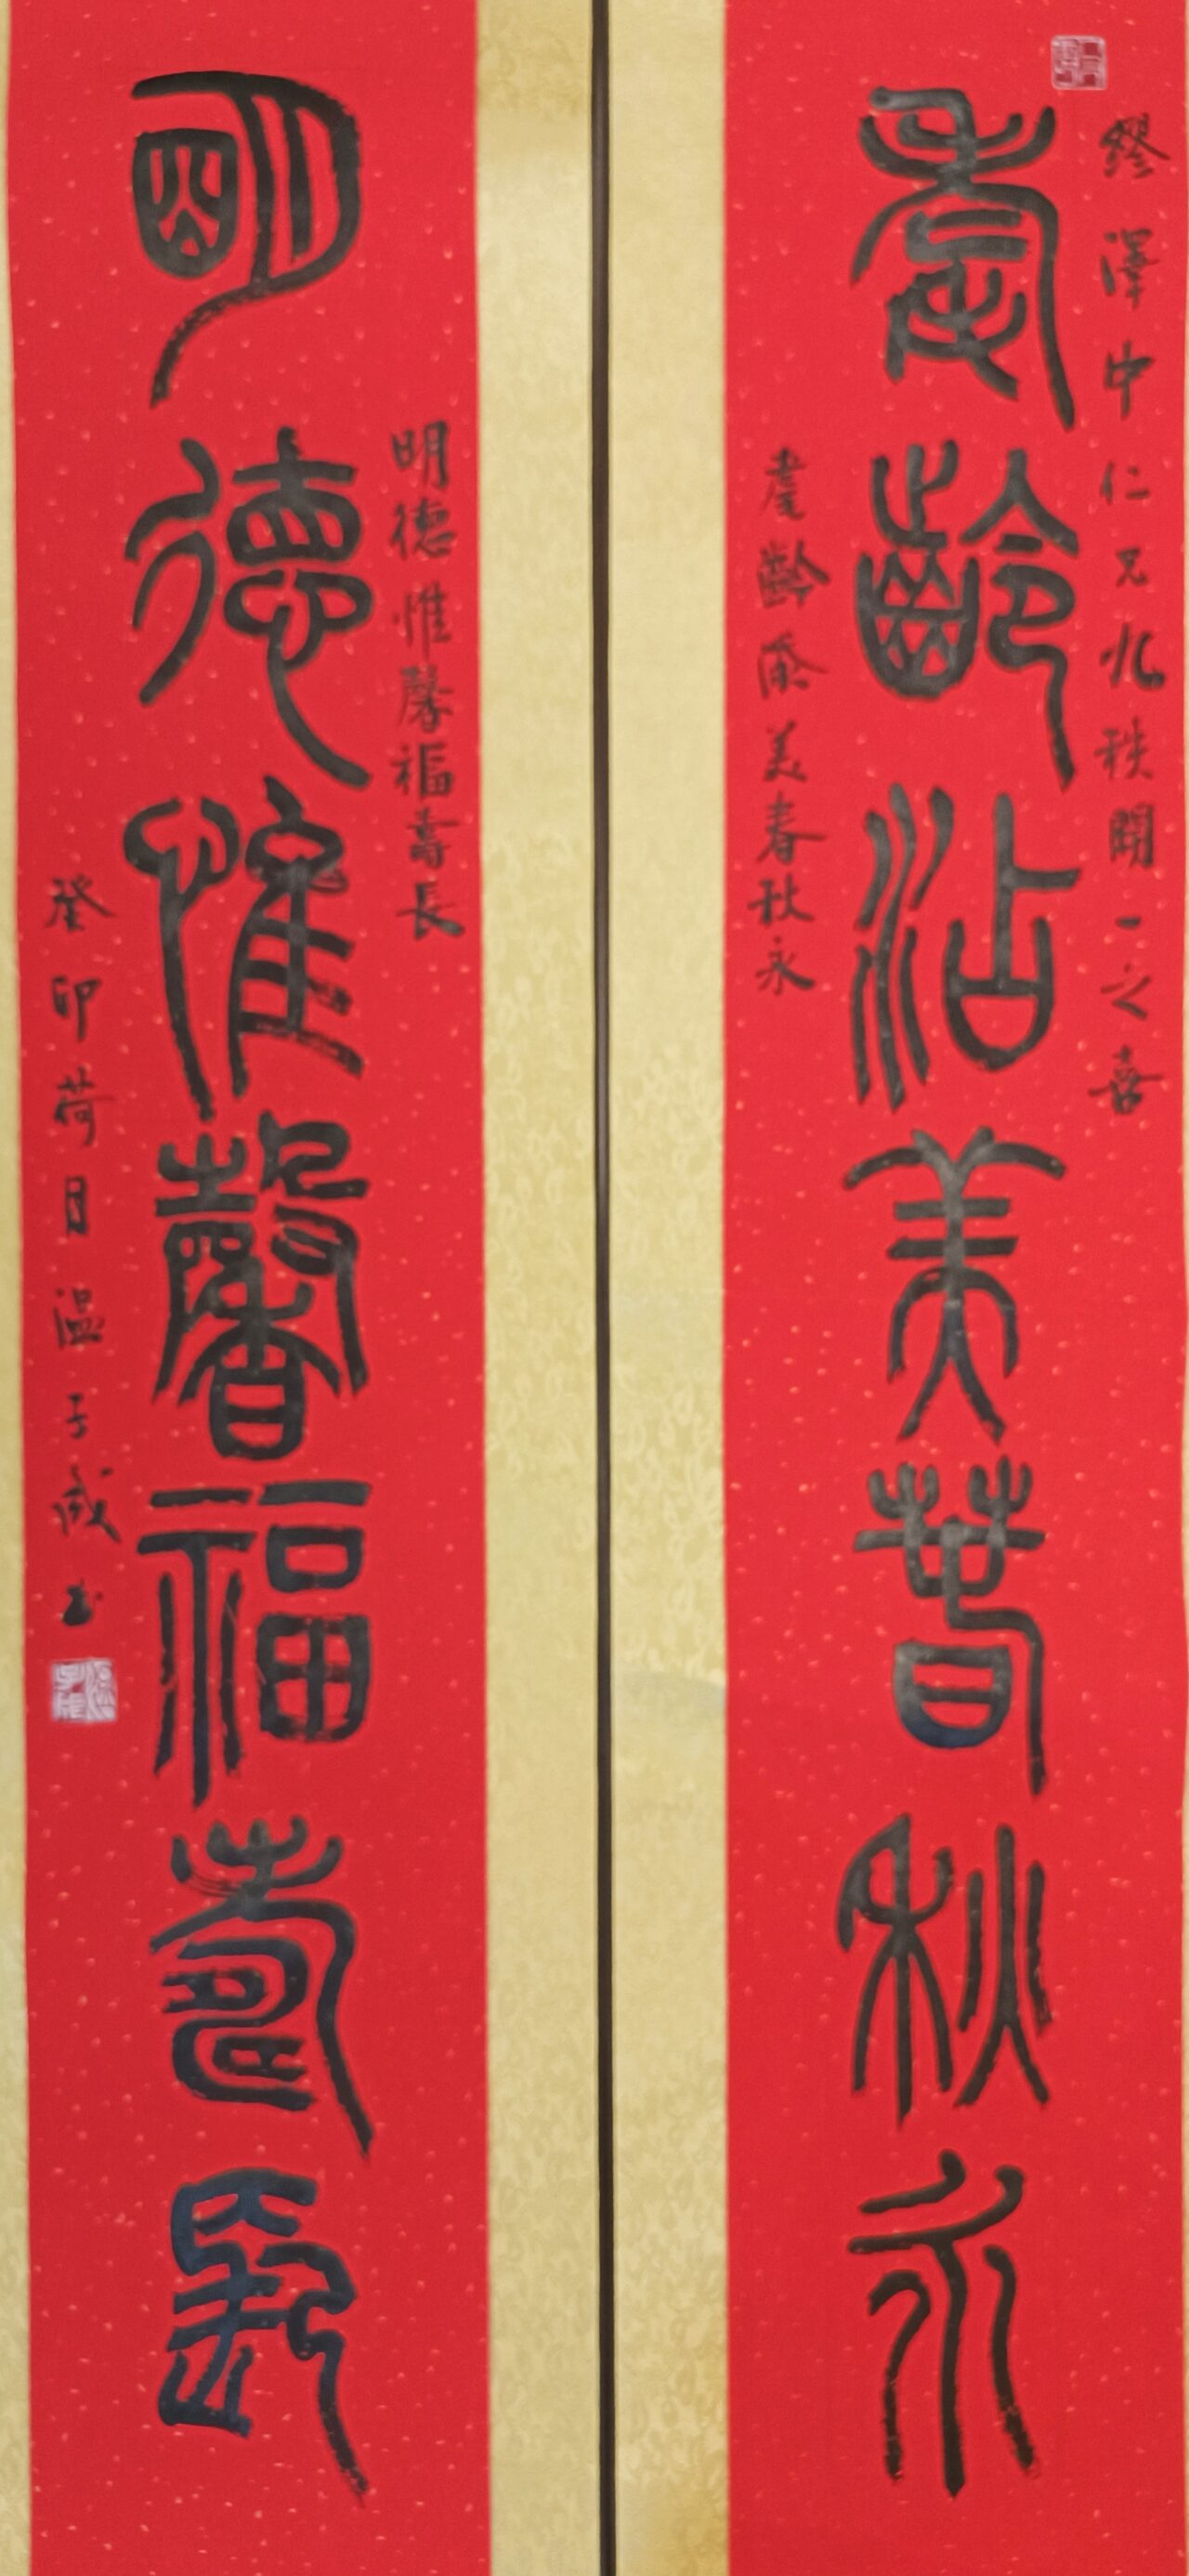 繆澤中仁兄九秩開一之喜
耋齡沾美春秋永
耋齡添美春秋永
明德惟馨福壽長
明德惟馨福壽長
癸卯荷月溫子成書